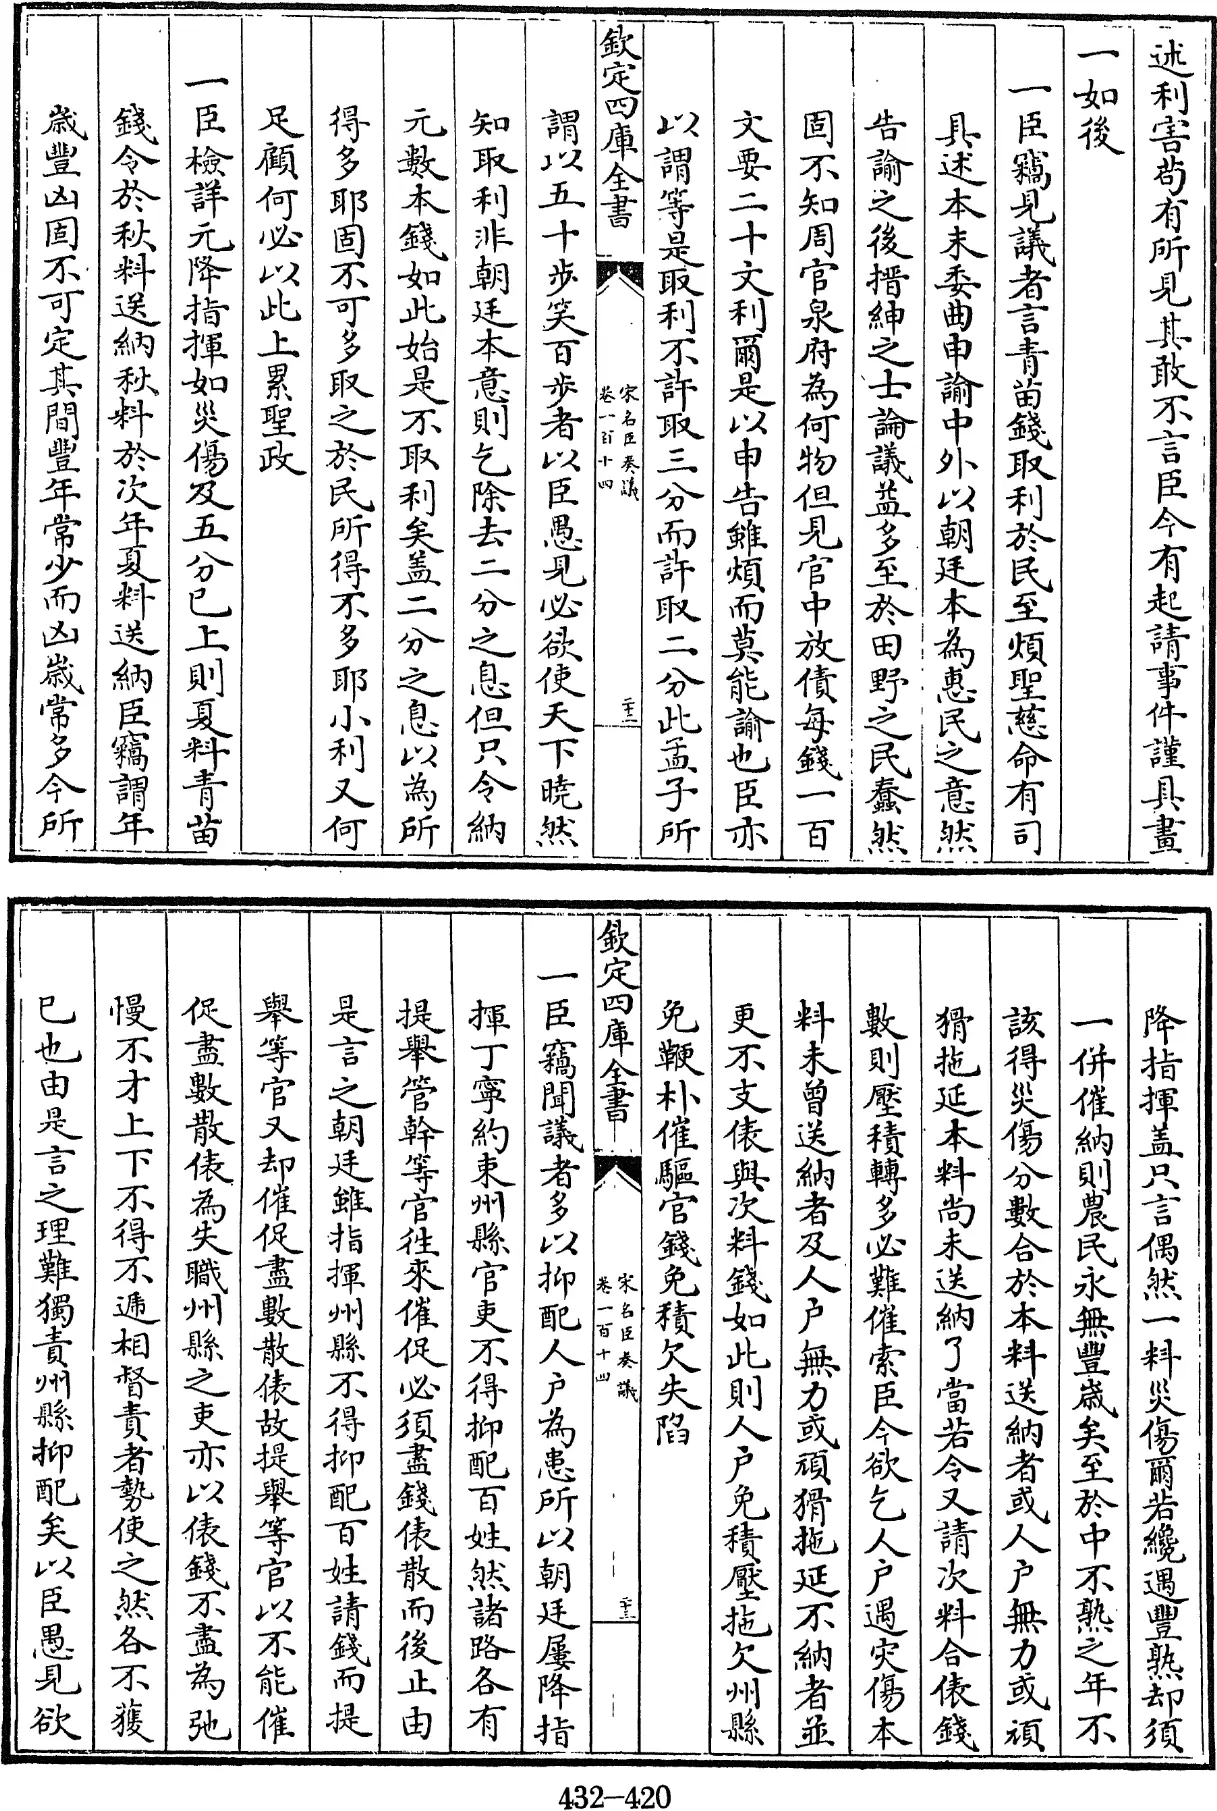 述利害苟有所見其敢不言臣今有起請事件謹具畫
一如後
一臣竊見議者言青苗錢取利於民至煩聖慈命有司
具述本末委曲申諭中外以朝廷本為惠民之意然
告諭之後搢紳之士論議益多至於田野之民蠢然
固不知周官泉府為何物但見官中放債每錢一百
文要二十文利爾是以申告雖煩而莫能諭也臣亦
以謂等是取利不許取三分而許取二分此孟子所
欽定四庫全書
宋名臣奏議
卷一百十四
二十二
謂以五十步笑百步者以臣愚見必欲使天下曉然
知取利非朝廷本意則乞除去二分之息但只令納
元數本錢如此始是不取利矣盖二分之息以為所
得多耶固不可多取之於民所得不多耶小利又何
足顧何必以此上累聖政
一臣檢詳元降指揮如災傷及五分已上則夏料青苗
錢令於秋料送納秋料於次年夏料送納臣竊謂年
歲豐凶固不可定其間豐年常少而凶歲常多今所
降指揮盖只言偶然一料災傷爾若纔遇豐熟却須
一併催納則農民永無豐歲矣至於中不熟之年不
該得災傷分數合於本料送納者或人户無力或頑
猾拖延本料尚未送納了當若令又請次料合俵錢
數則壓積轉多必難催索臣今欲乞人户遇灾傷本
料未曾送納者及人户無力或頑猾拖延不納者並
更不支俵與次料錢如此則人户免積壓拖欠州縣
免鞭朴催驅官錢免積欠失陷
欽定四庫全書
宋名臣奏議
卷一百十四
二十三
一臣竊聞議者多以抑配人户為患所以朝廷屢降指
揮丁寧約束州縣官吏不得抑配百姓然諸路各有
提舉管幹等官徃來催促必須盡錢俵散而後止由
是言之朝廷雖指揮州縣不得抑配百姓請錢而提
舉等官又却催促盡數散俵故提舉等官以不能催
促盡數散俵為失職州縣之吏亦以俵錢不盡為弛
慢不才上下不得不遞相督責者勢使之然各不獲
已也由是言之理難獨責州縣抑配矣以臣愚見欲
432—420